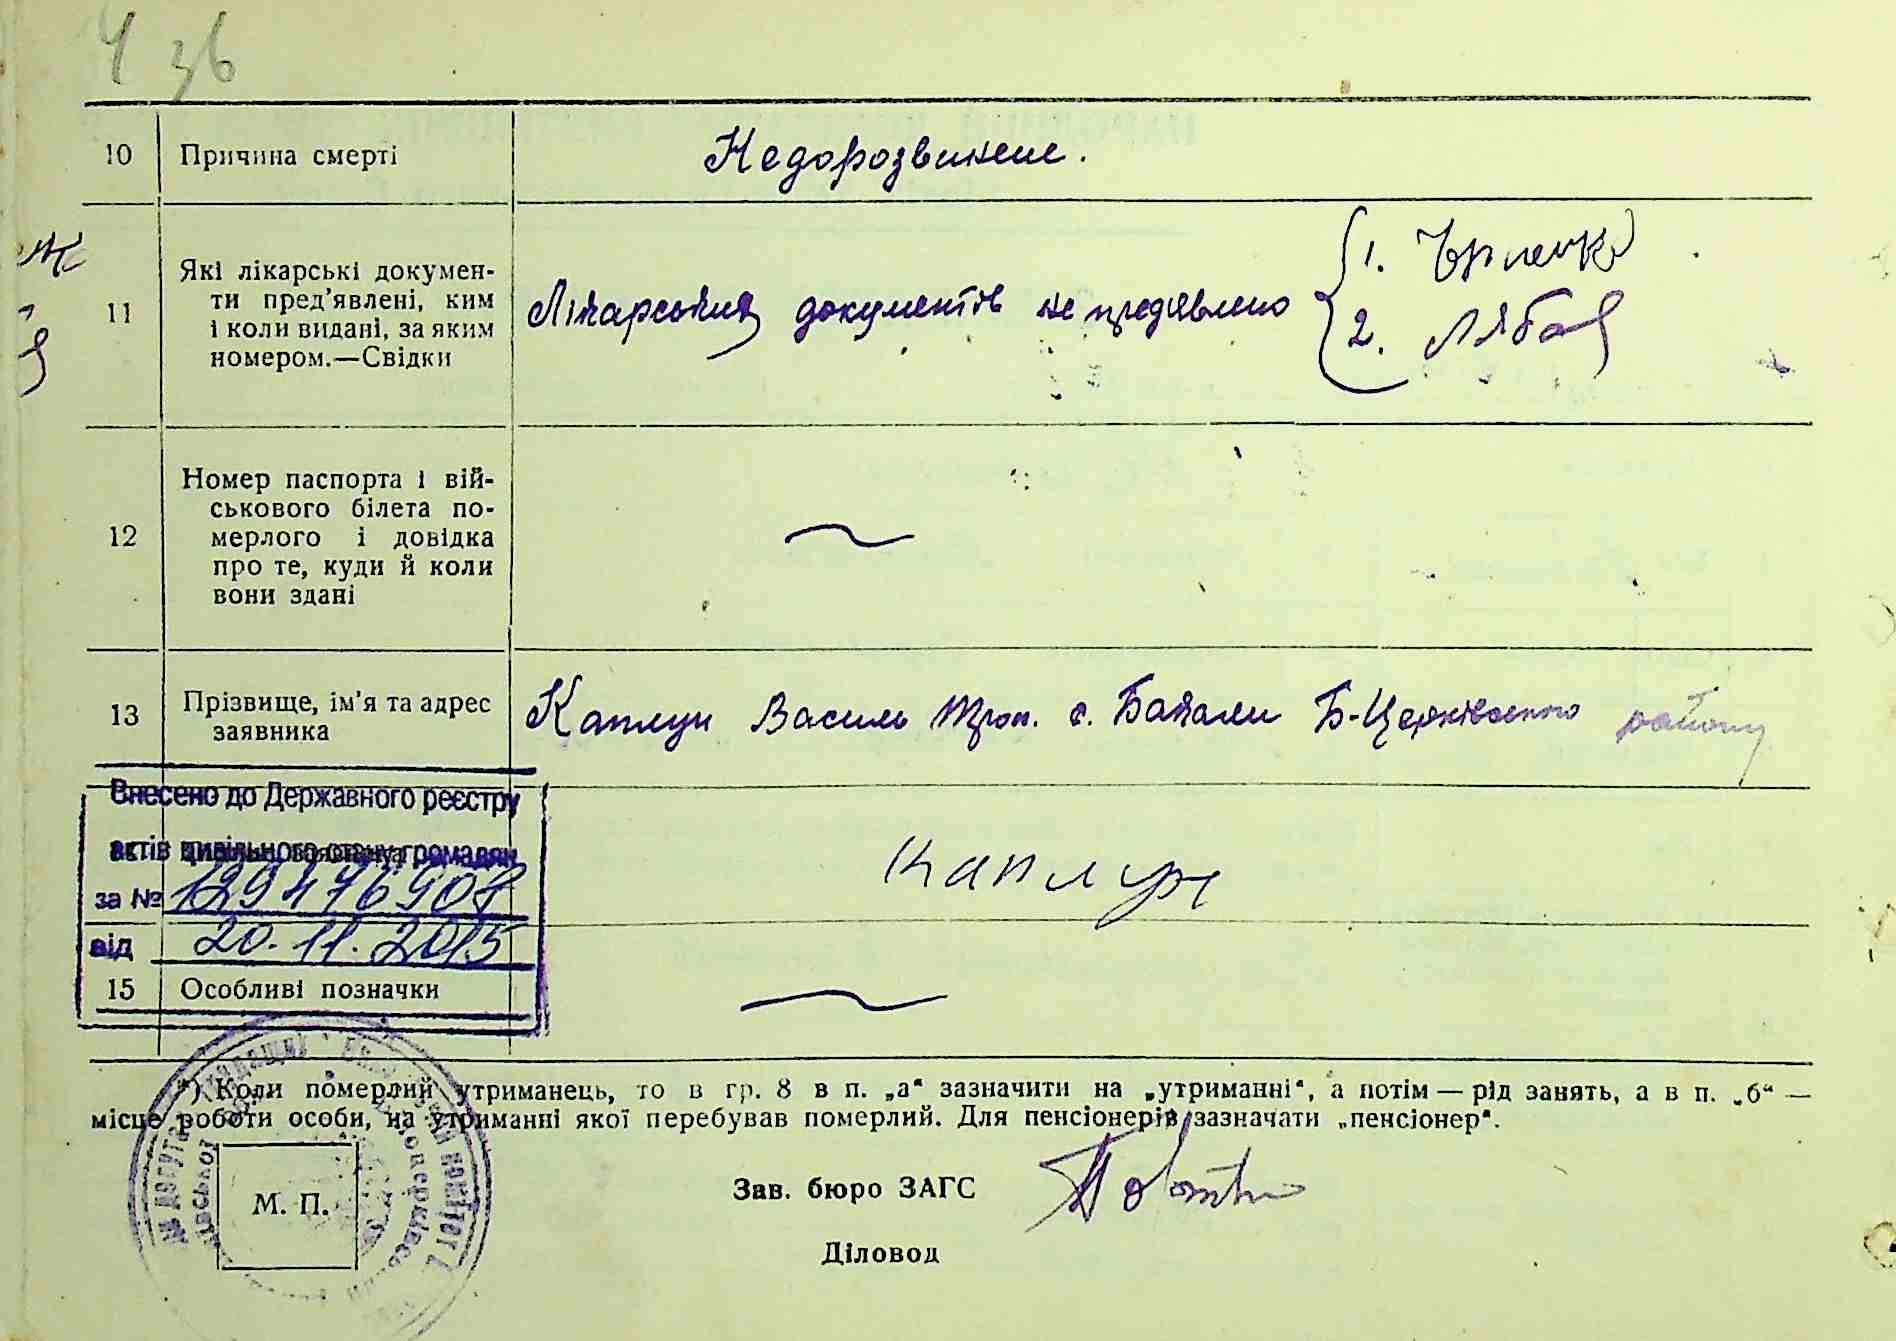 Ч зв
10 Причина смерті Недорозвинене.
11 Які лікарські докумен-
ти пред’явлені, ким
і коли видані, за яким
номером.—Свідки
Лікарських документів не предявлено
1.
2. Лябах
12 Номер паспорта і вій-
ськового білета по-
мерлого і довідка
про те, куди й коли
вони здані
13 Прізвище, ім’я та адрес
заявника
Каплун Василь Троп. с. Бакали Б-Церківського району
Внесено до Державного реєстру
актів цивільного стану громадян
за № 129476907
від 20.11.2015
Каплун
15 Особливі позначки
*) Коли померлий утриманець, то в гр. 8 в п. „а“ зазначити на „утриманні“, а потім — рід занять, а в п. „б“ —
місце роботи особи, на утриманні якої перебував померлий. Для пенсіонерів зазначати „пенсіонер“.
М. П.
Зав. бюро ЗАГС
Діловод